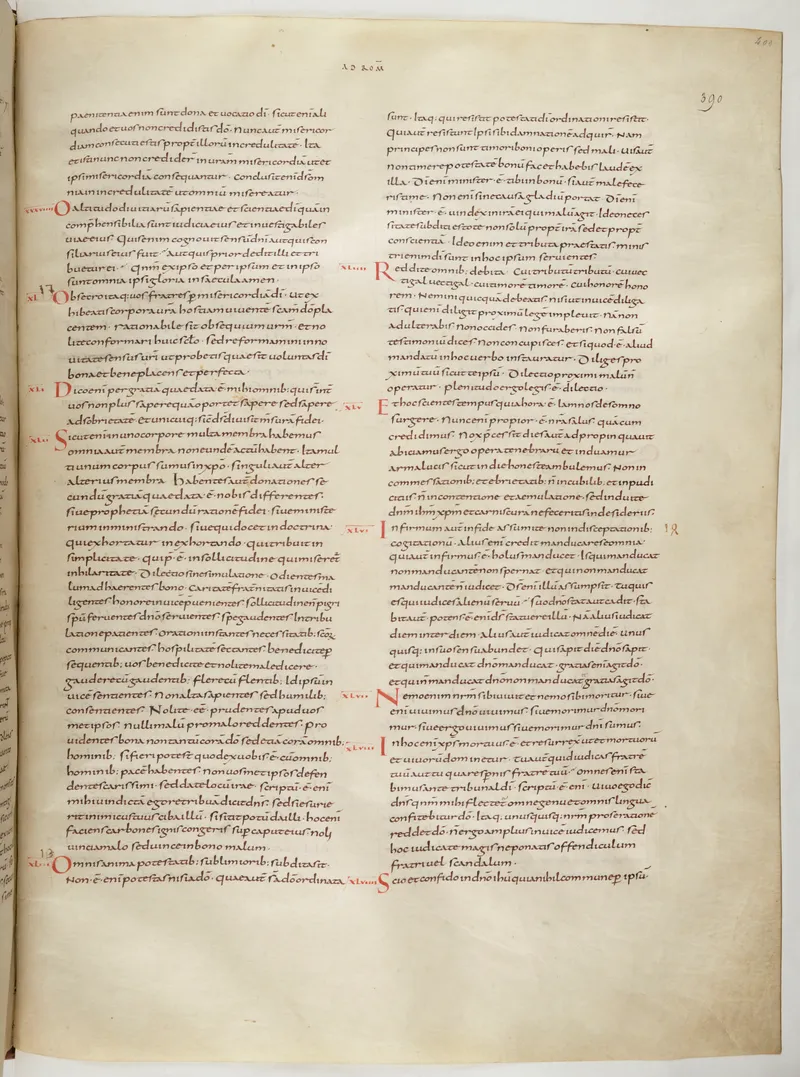 AD ROM̄
390
paenitentia enim sunt dona et uocatio dī · sicut enī ali
quando et uos non credidistis dō · Nunc aut̄ misericor
diam consecuti estis propt̄ illorū incredulitatē · Ita
et isti nunc non crediderunt in uram̄ misericordiā ut et
ipsi misericordiā consequantur · Conclusit enī dī om̄
nia in incredulitate ut omniū misereatur ·
O altitudo diuitiarū sapientiae et scientiae dī quā in
comp̄hensibilia sunt iudicia eius et inuestigabiles
uiae eius · Quis enim cognouit sensū dnī aut quis con
siliarius eius fuit · Aut quis prior dedit illi et tri
buetur ei · Qnm̄ ex ipso et per ipsum et in ipso
sunt omnia ipsi gloria in saecula amen ·
XL · Obsecro itaq; uos fratres p̄ misericordiā dī · ut ex
hibeatis corpora ura hostiam uiuentē scam̄ dō pla
centem · rationabile sit obsequium urm̄ · et no
lite conformari huic sclo · sed reformamini no
uitate sensus uri ut probetis quae sit uoluntas dī
bona et beneplacens et perfecta ·
XLI · Dico enī per gratiā quae data ē mihi omnib; qui sunt
int̄ uos non plus sapere quā oportet sapere sed sapere
ad sobrietatē et unicuiq; sic dī diuisit m̄surā fidei ·
XLII · Sicut enī in uno corpore multa membra habemus
omnia aut̄ membra non eundē actū habent · Ita mul
ti unum corpus sumus in xpō · singuli aut̄ alter
alterius membra · Habentes aut̄ donationes se
cundū gratiā quae data ē nobis differentes ·
siue prophetiā secundū rationē fidei · siue ministe
rium in ministrando · siue qui docet in doctrina ·
qui exhortatur in exhortando · qui tribuit in
simplicitate · qui p̄ē in sollicitudine qui miseret̄
in hilaritate · Dilectio sine simulatione · Odientes ma
lum adhaerentes bono · Caritatē frat̄nitatis inuicē di
ligentes honore inuicē p̄uenientes · sollicitudine n̄ pigri
spū feruentes dnō seruientes · spe gaudentes In tribu
latione patientes · orationi instantes necessitatib; scōr
communicantes · hospitalitatē sectantes · benedicite p̄
sequentib; uos benedicite et nolite maledicere ·
gaudere cū gaudentib; flere cū flentib; Id ipsū in
uicē sentientes · Non alta sapientes sed humilib;
consentientes · Nolite eē prudentes apud uos
met ipsos · nulli malū pro malo reddentes · pro
uidentes bona non tantū corā dō sed etiā corā omnib;
hominib; si fieri potest quod ex uobis ē cū omnib;
hominib; pacē habentes · non uos met ipsos defen
dentes carissimi · sed date locū irae · scriptū ē enī
mihi uindictā ego retribuā dicit dns · sed si esurie
rit inimicus tuus ciba illū · si sitit potū da illi · hoc enī
faciens carbones ignis congeris sup̄ caput eius noli
uinci a malo sed uince in bono malum ·
Omnis anima potestatib; sublimiorib; subdita sit ·
Non ē enī potestas nisi a dō · quae aut̄ s̄ a dō ordinata
sunt · Itaq; qui resistit potestati dī ordinationi resistit ·
Qui aut̄ resistunt ipsi sibi damnationē adquir̄ · Nam
principes non sunt timori boni operis sed mali · Uis aut̄
non timere potestatē bonū fac et habebis laudē ex
illa · Dī enī minister ē tibi in bonū · si aut̄ male fece
ris time · Non enī sine causa gladiū portat · Dī enī
minister ē uindex in irā ei qui malū agit · Ideo neces
sitate subditi estote non solū propt̄ irā sed et propt̄
conscientiā · Ideo enim et tributa praestatis minis
tri enim dī sunt in hoc ipsum seruientes ·
Reddite omnib; debita · Cui tributū tributū · cui uec
tigal uectigal · cui timorē timorē · cui honorē hono
rem · Nemini quicquā debeatis nisi ut inuicē diliga
tis qui enī diligit proximū legē impleuit · Nā non
adulterabis Non occides Non furaberis Non falsū
testimoniū dices Non concupisces et si quod ē aliud
mandatū in hoc uerbo instauratur · Diliges pro
ximū tuū sicut te ipsū · Dilectio proximi malū n̄
operatur · plenitudo ergo legis ē dilectio ·
XLV · Et hoc scientes tempus quia hora ē iam nos de somno
surgere · Nunc enī propior ē nrā salus quā cum
credidimus · Nox p̄cessit dies aut̄ adpropinquauit
abiciamus ergo opera tenebrarū et induamur
arma lucis sicut in die honeste ambulemus · Non in
commessationib; et ebrietatib; n̄ in cubilib; et inpudi
citiis n̄ in contentione et aemulatione · sed induite
dnm̄ ihm̄ xpm̄ et carnis curā ne feceritis in desideriis ·
Infirmum aut̄ in fide assumite non in disceptationib;
cogitationū · Alius enī credit manducare se omnia ·
qui aut̄ infirmus ē holus manducet · Is qui manducat
non manducantē non spernat · et qui non manducat
manducantē n̄ iudicet · Dī enī illū assumpsit · tu quis
es qui iudices alienū seruū · suo dnō stat aut cadit · sta
bit aut̄ · potens ē enī dī statuere illū · Nā alius iudicat
diem inter diem · Alius aut̄ iudicat omnē diē · Unus
quisq; in suo sensu abundet · qui sapit diē dnō sapit ·
et qui manducat dnō manducat · gratias enī agit dō ·
et qui n̄ manducat dnō non manducat gratias agit dō ·
XLVII · Nemo enim nrm̄ sibi uiuit et nemo sibi moritur · siue
enī uiuimus dnō uiuimus siue morimur dnō mori
mur · siue ergo uiuimus siue morimur dnī sumus ·
XLVIII · In hoc enī xps̄ mortuus ē et resurrexit ut et mortuorū
et uiuorū dominetur · tu aut̄ quid iudicas fratrē
tuū aut tu quare spernis fratrē tuū · omnes enī sta
bimus ante tribunal dī · scriptū ē enī · Uiuo ego dic̄
dns̄ qnm̄ mihi flectet omne genu et omnis lingua
confitebitur dō · Itaq; unusquisq; nrm̄ pro se rationē
reddet dō · N̄ ergo amplius inuicē iudicemus · sed
hoc iudicate magis ne ponatis offendiculum
fratri uel scandalum ·
XLVIIII · Scio et confido in dnō ihū quia nihil commune p̄ ipsū ·